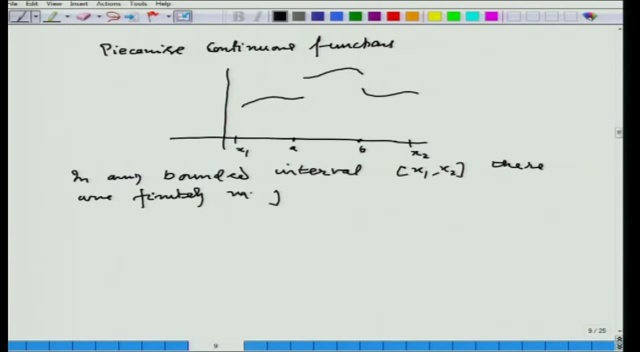 File Edit View Insert Actions Tools Help
Piecewise Continuous functions
x1 a b x2
In any bounded interval [x1, x2] there
are finitely m
9/25
9